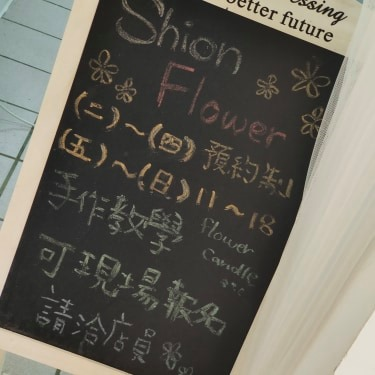 better future
Shion
Flower
(二)~(四)預約制
(五)~(日)11~18
手作教學
flower
Candle
可現場報名
請洽店員